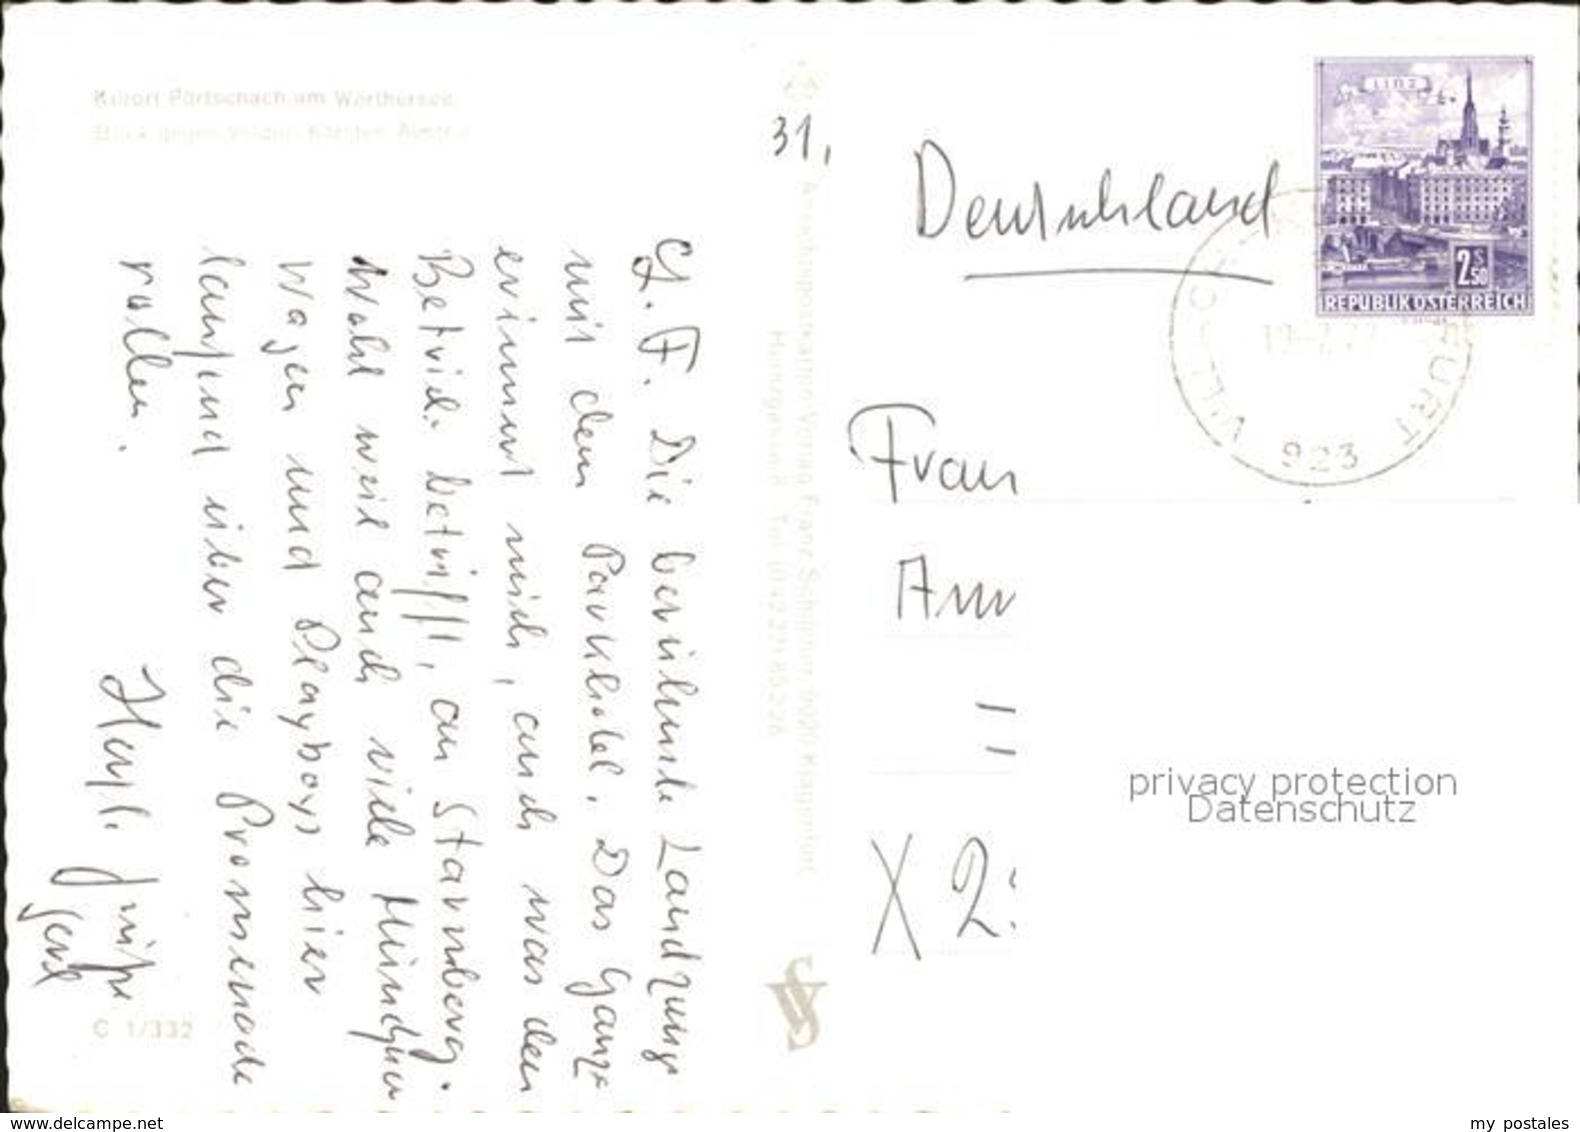 Kurort Pörtschach am Wörthersee
Blick gegen Velden Kärnten Austria
L. F. Die berühmte Landzunge
mit dem Parkhotel. Das Ganze
erinnert mich, auch was den
Betrieb betrifft, an Starnberg.
Wohl weil auch viele Münchner
Wagen und Playboys hier
laufend über die Promenade
rollen.
Herzl. Grüße
C 1/332
31,
Ansichtspostkarten-Verlag Franz Schilcher, 9020 Klagenfurt
Tel. (04222) 85226
Deutschland
LINZ
2S50
REPUBLIK ÖSTERREICH
923
Frau
Am
X 2
privacy protection
Datenschutz
www.delcampe.net
my postales